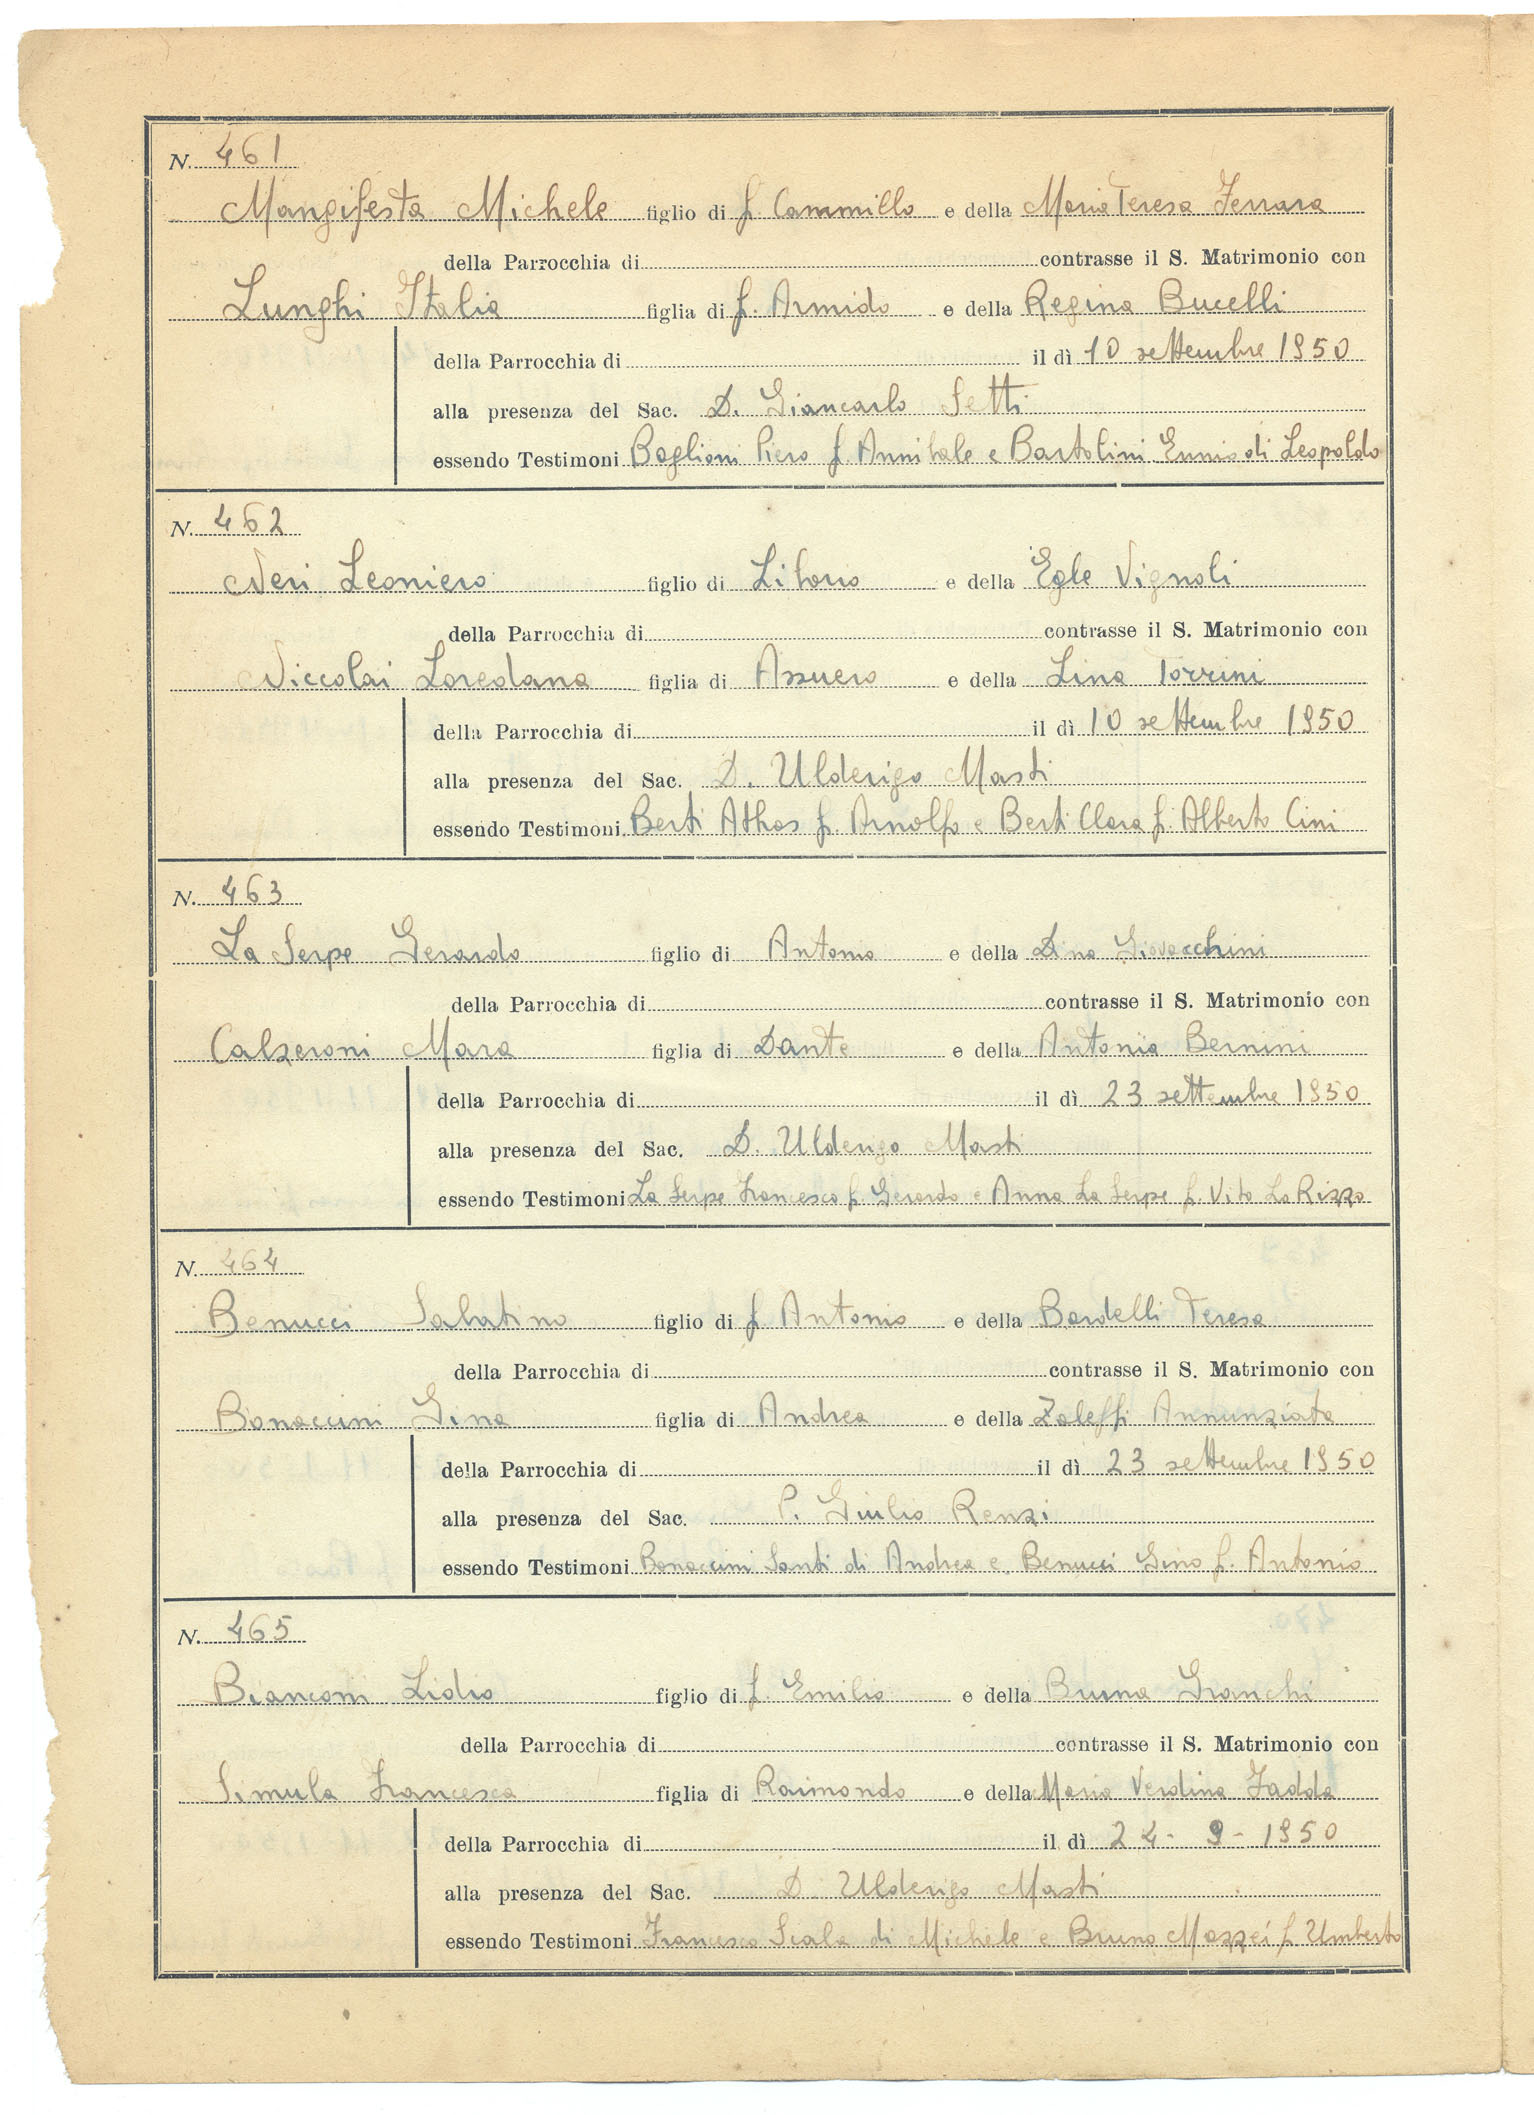 N. 461
Mangifesta Michele figlio di f. Cammillo e della Maria Teresa Ferrara
della Parrocchia di contrasse il S. Matrimonio con
Lunghi Italia figlia di f. Armido e della Regina Bucelli
della Parrocchia di il dì 10 settembre 1950
alla presenza del Sac. D. Giancarlo Setti
essendo Testimoni Baglioni Piero f. Annibale e Bartolini Ennio di Leopoldo
N. 462
Neri Leoniero figlio di Liborio e della Egle Vignoli
della Parrocchia di contrasse il S. Matrimonio con
Niccolai Loredana figlia di Assuero e della Lina Torrini
della Parrocchia di il dì 10 settembre 1950
alla presenza del Sac. D. Ulderigo Masti
essendo Testimoni Berti Athos f. Arnolfo e Berti Clara f. Alberto Cini
N. 463
La Serpe Gerardo figlio di Antonio e della Dina Giovacchini
della Parrocchia di contrasse il S. Matrimonio con
Calzeroni Mara figlia di Dante e della Antonia Bernini
della Parrocchia di il dì 23 settembre 1950
alla presenza del Sac. D. Ulderigo Masti
essendo Testimoni La Serpe Francesco f. Gerardo e Anna La Serpe f. Vito Lo Rizzo
N. 464
Benucci Sabatino figlio di f Antonio e della Bardelli Teresa
della Parrocchia di contrasse il S. Matrimonio con
Bonaccini Gina figlia di Andrea e della Zaleffi Annunziata
della Parrocchia di il dì 23 settembre 1950
alla presenza del Sac. P. Giulio Renzi
essendo Testimoni Bonaccini Santi di Andrea e Benucci Gino f. Antonio
N. 465
Bianconi Lidio figlio di f. Emilio e della Bruna Granchi
della Parrocchia di contrasse il S. Matrimonio con
Simula Francesca figlia di Raimondo e della Maria Verdina Fadda
della Parrocchia di il dì 24 - 9 - 1950
alla presenza del Sac. D. Ulderigo Masti
essendo Testimoni Francesco Scala di Michele e Bruno Mazzei f Umberto